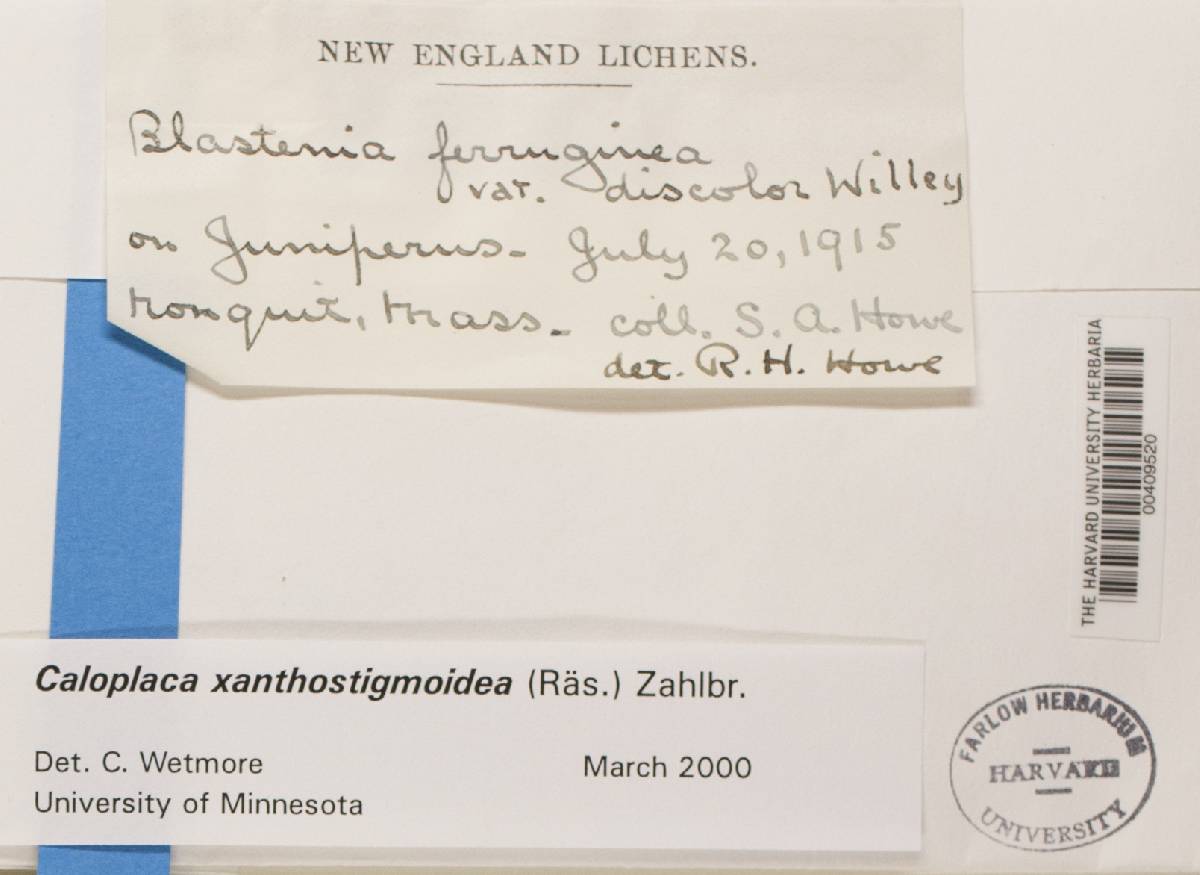 NEW ENGLAND LICHENS.
Blastenia ferruginea
var. discolor Willey
on Juniperus- July 20, 1915
Nonquit, Mass. - coll. S. A. Howe
det. R. H. Howe
THE HARVARD UNIVERSITY HERBARIA
00409520
Caloplaca xanthostigmoidea (Räs.) Zahlbr.
Det. C. Wetmore March 2000
University of Minnesota
FARLOW HERBARIUM
HARVARD
UNIVERSITY